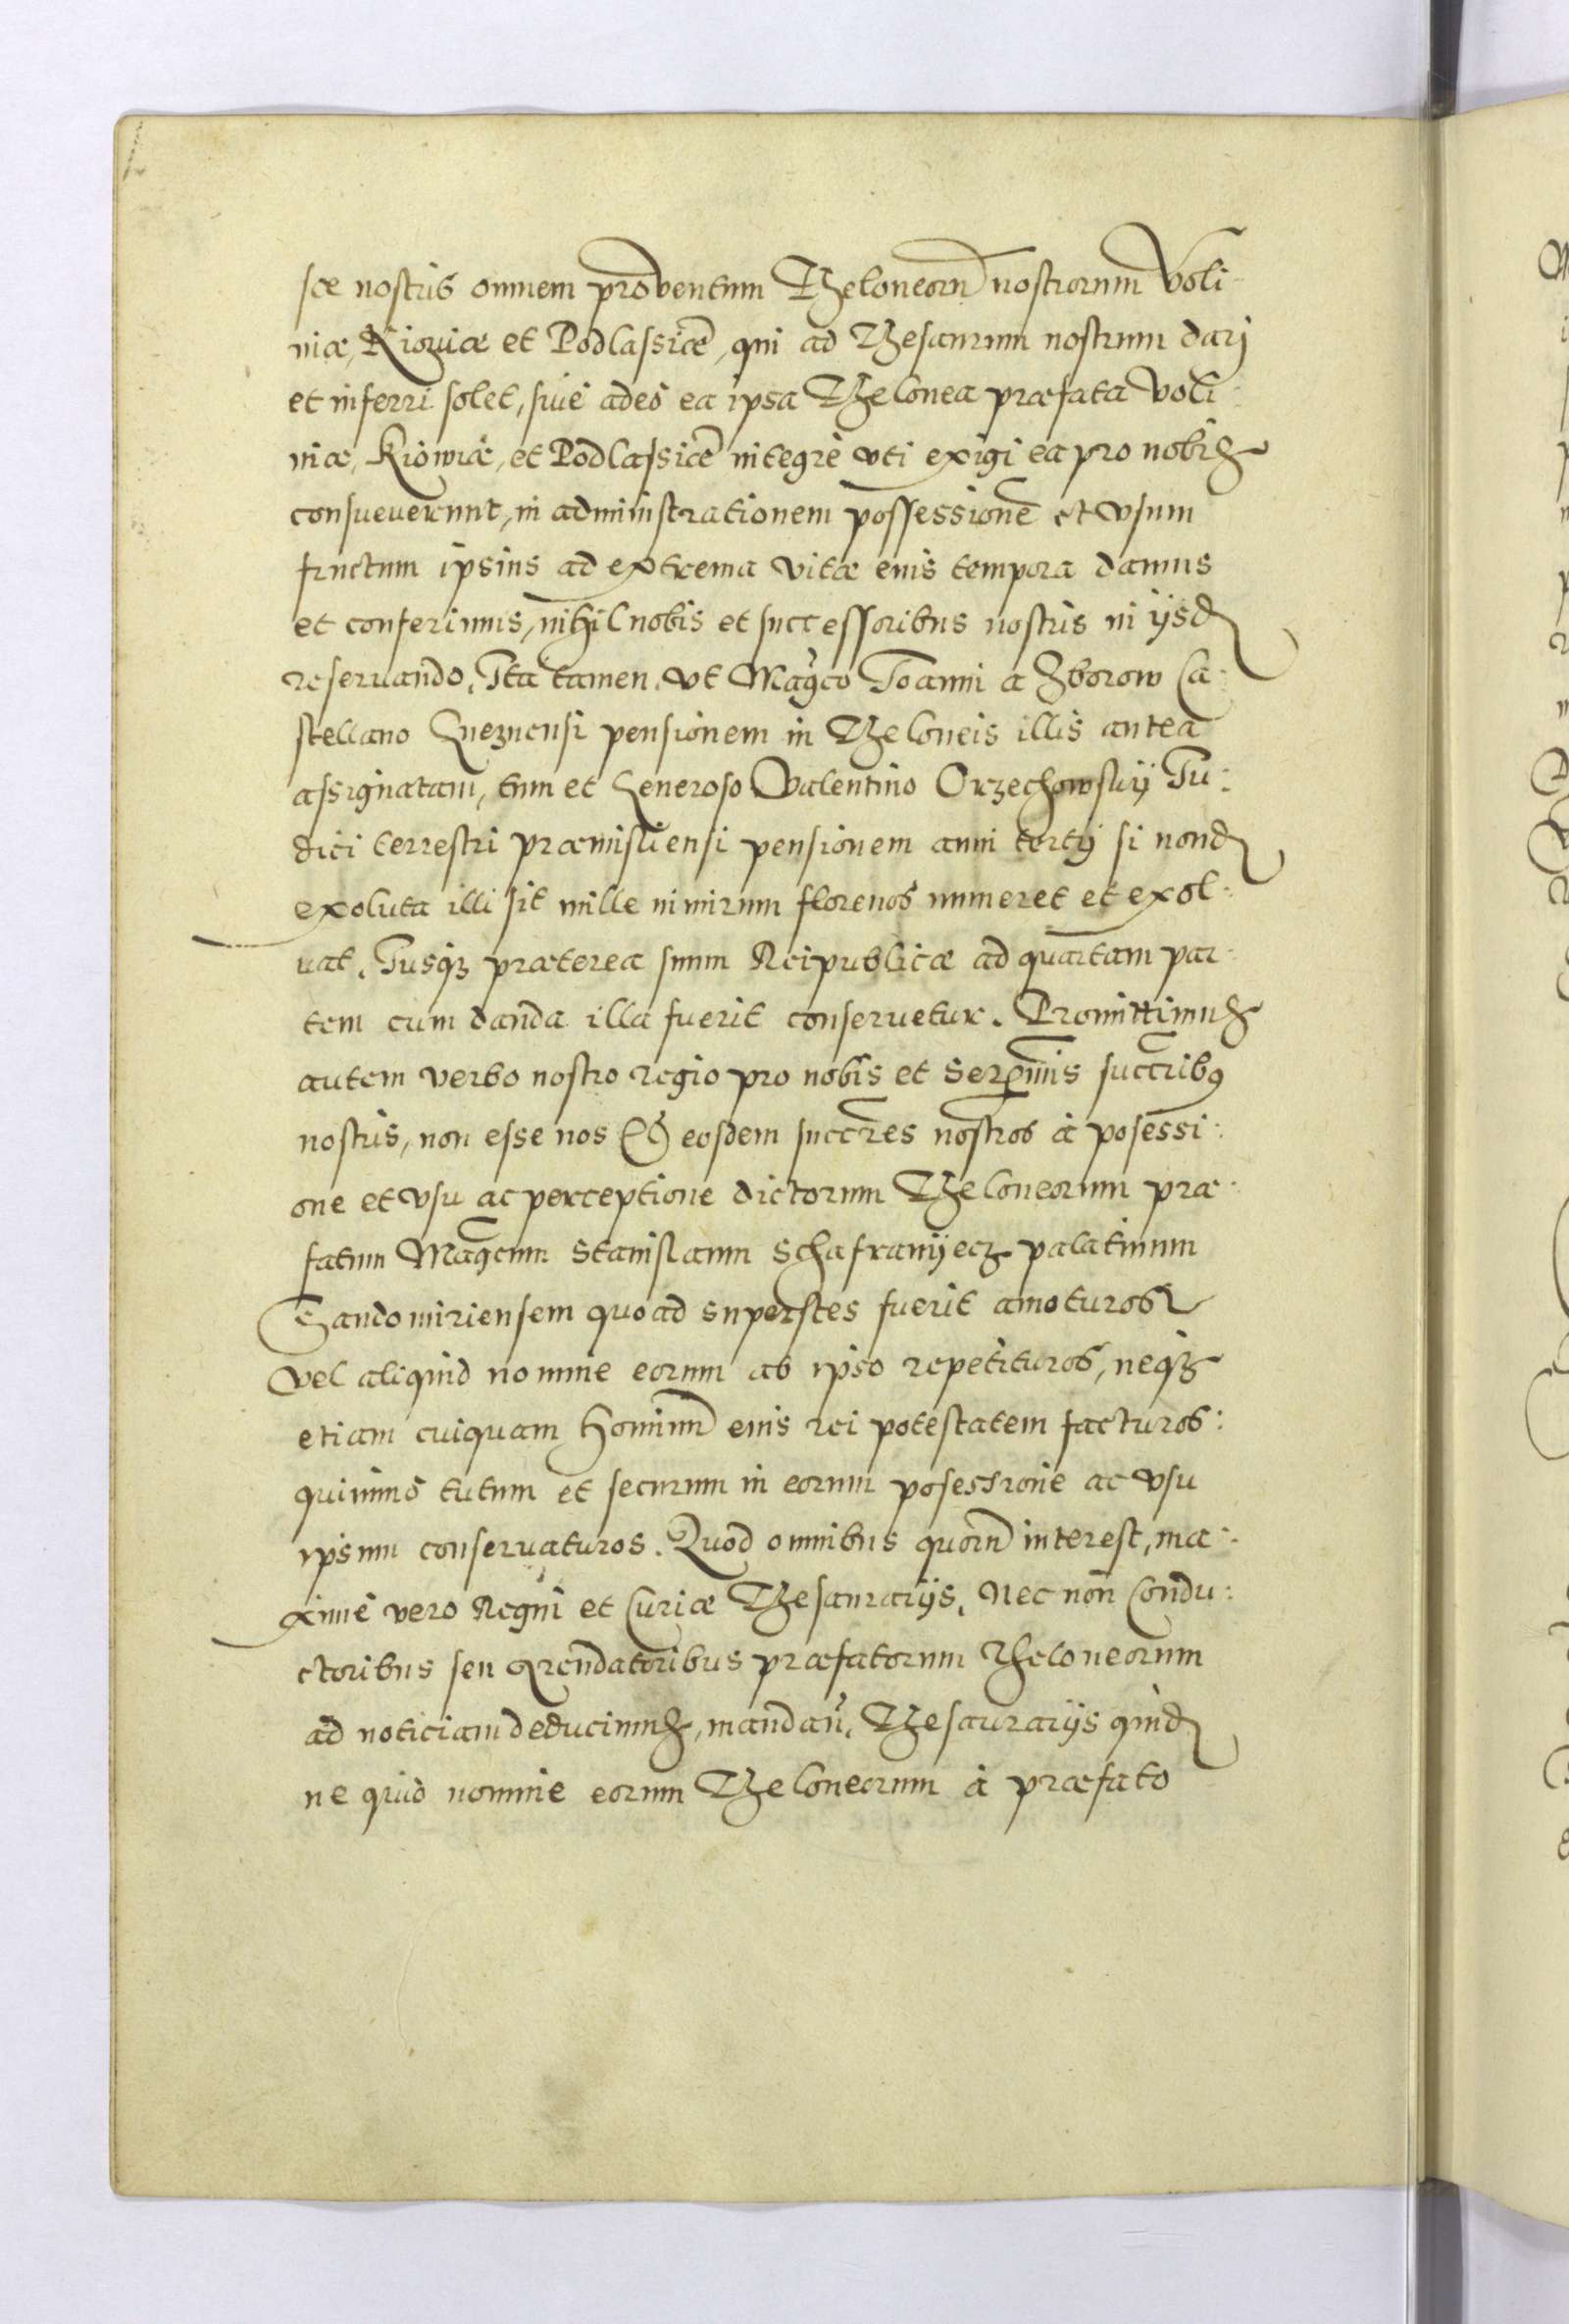 sce nostris omnem proventum Theloneorū nostrorum Voli-
niæ, Kioviæ et Podlassicē, qui ad Thesaurum nostrum darj
et inferri solet, siue adeo ea ipsa Thelonea præfata Voli-
niæ, Kiowiæ, et Podlassicē integrè vti exigi ea pro nobis
consueuerunt, in administrationem possessionē et vsum
fructum ipsius ad extrema vitæ eius tempora damus
et conferimus, nihil nobis et successoribus nostris in ijsd
reseruando. Ita tamen, vt Magco Ioanni a Zborow Ca-
stellano Gneznensi pensionem in Theloneis illis antea
assignatam, tum et Generoso Valentino Orzechowskij Iu:
dici terrestri præmisliensi pensionem anni tertij si nond
exoluta illi sit mille nimirum florenos numeret et exol-
uat. Iusq; præterea suum Reipublicæ ad quartam par-
tem cum danda illa fuerit conseruetur. Promittimus
autem verbo nostro regio pro nobis et Sermis succribus
nostris, non esse nos & eosdem succres nostros à posessi:
one et vsu ac perceptione dictorum Theloneorum præ-
fatum Magcum Stanislaum Schafranyecz palatinum
Sandomiriensem quoad superstes fuerit amoturos
vel aliquid nomine eorum ab ipso repetituros, neq;
etiam cuiquam hominū eius rei potestatem facturos:
quinimo tutum et securum in eorum posessione ac vsu
ipsum conseruaturos. Quod omnibus quorū interest, ma-
ximè vero Regni et Curiæ Thesaurarijs, Nec non Condu:
ctoribus seu Arendatoribus præfatorum Theloneorum
ad noticiam deducimus, mandan̄, Thesaurarijs quid
ne quid nomine eorum Theloneorum à præfato